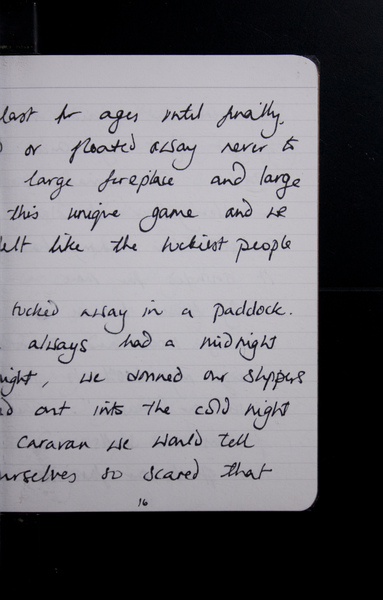 last for ages until finally,
or floated away never to
large fireplace and large
this unique game and we
felt like the luckiest people
tucked away in a paddock.
always had a midnight
night, we donned our slippers
out into the cold night
caravan we would tell
ourselves so scared that
16